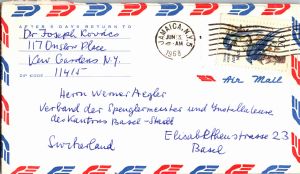 AFTER 5 DAYS RETURN TO
Dr Joseph Kovacs
117 Onslow Place
Kew Gardens N.Y.
ZIP CODE 11415
JAMAICA, N.Y.
JUN
AM
1968
Air Mail
Herrn Werner Aegler
Verband der Spenglermeister und Installateure
des Kantons Basel-Stadt
Elisabethenstrasse 23
Switzerland
Basel